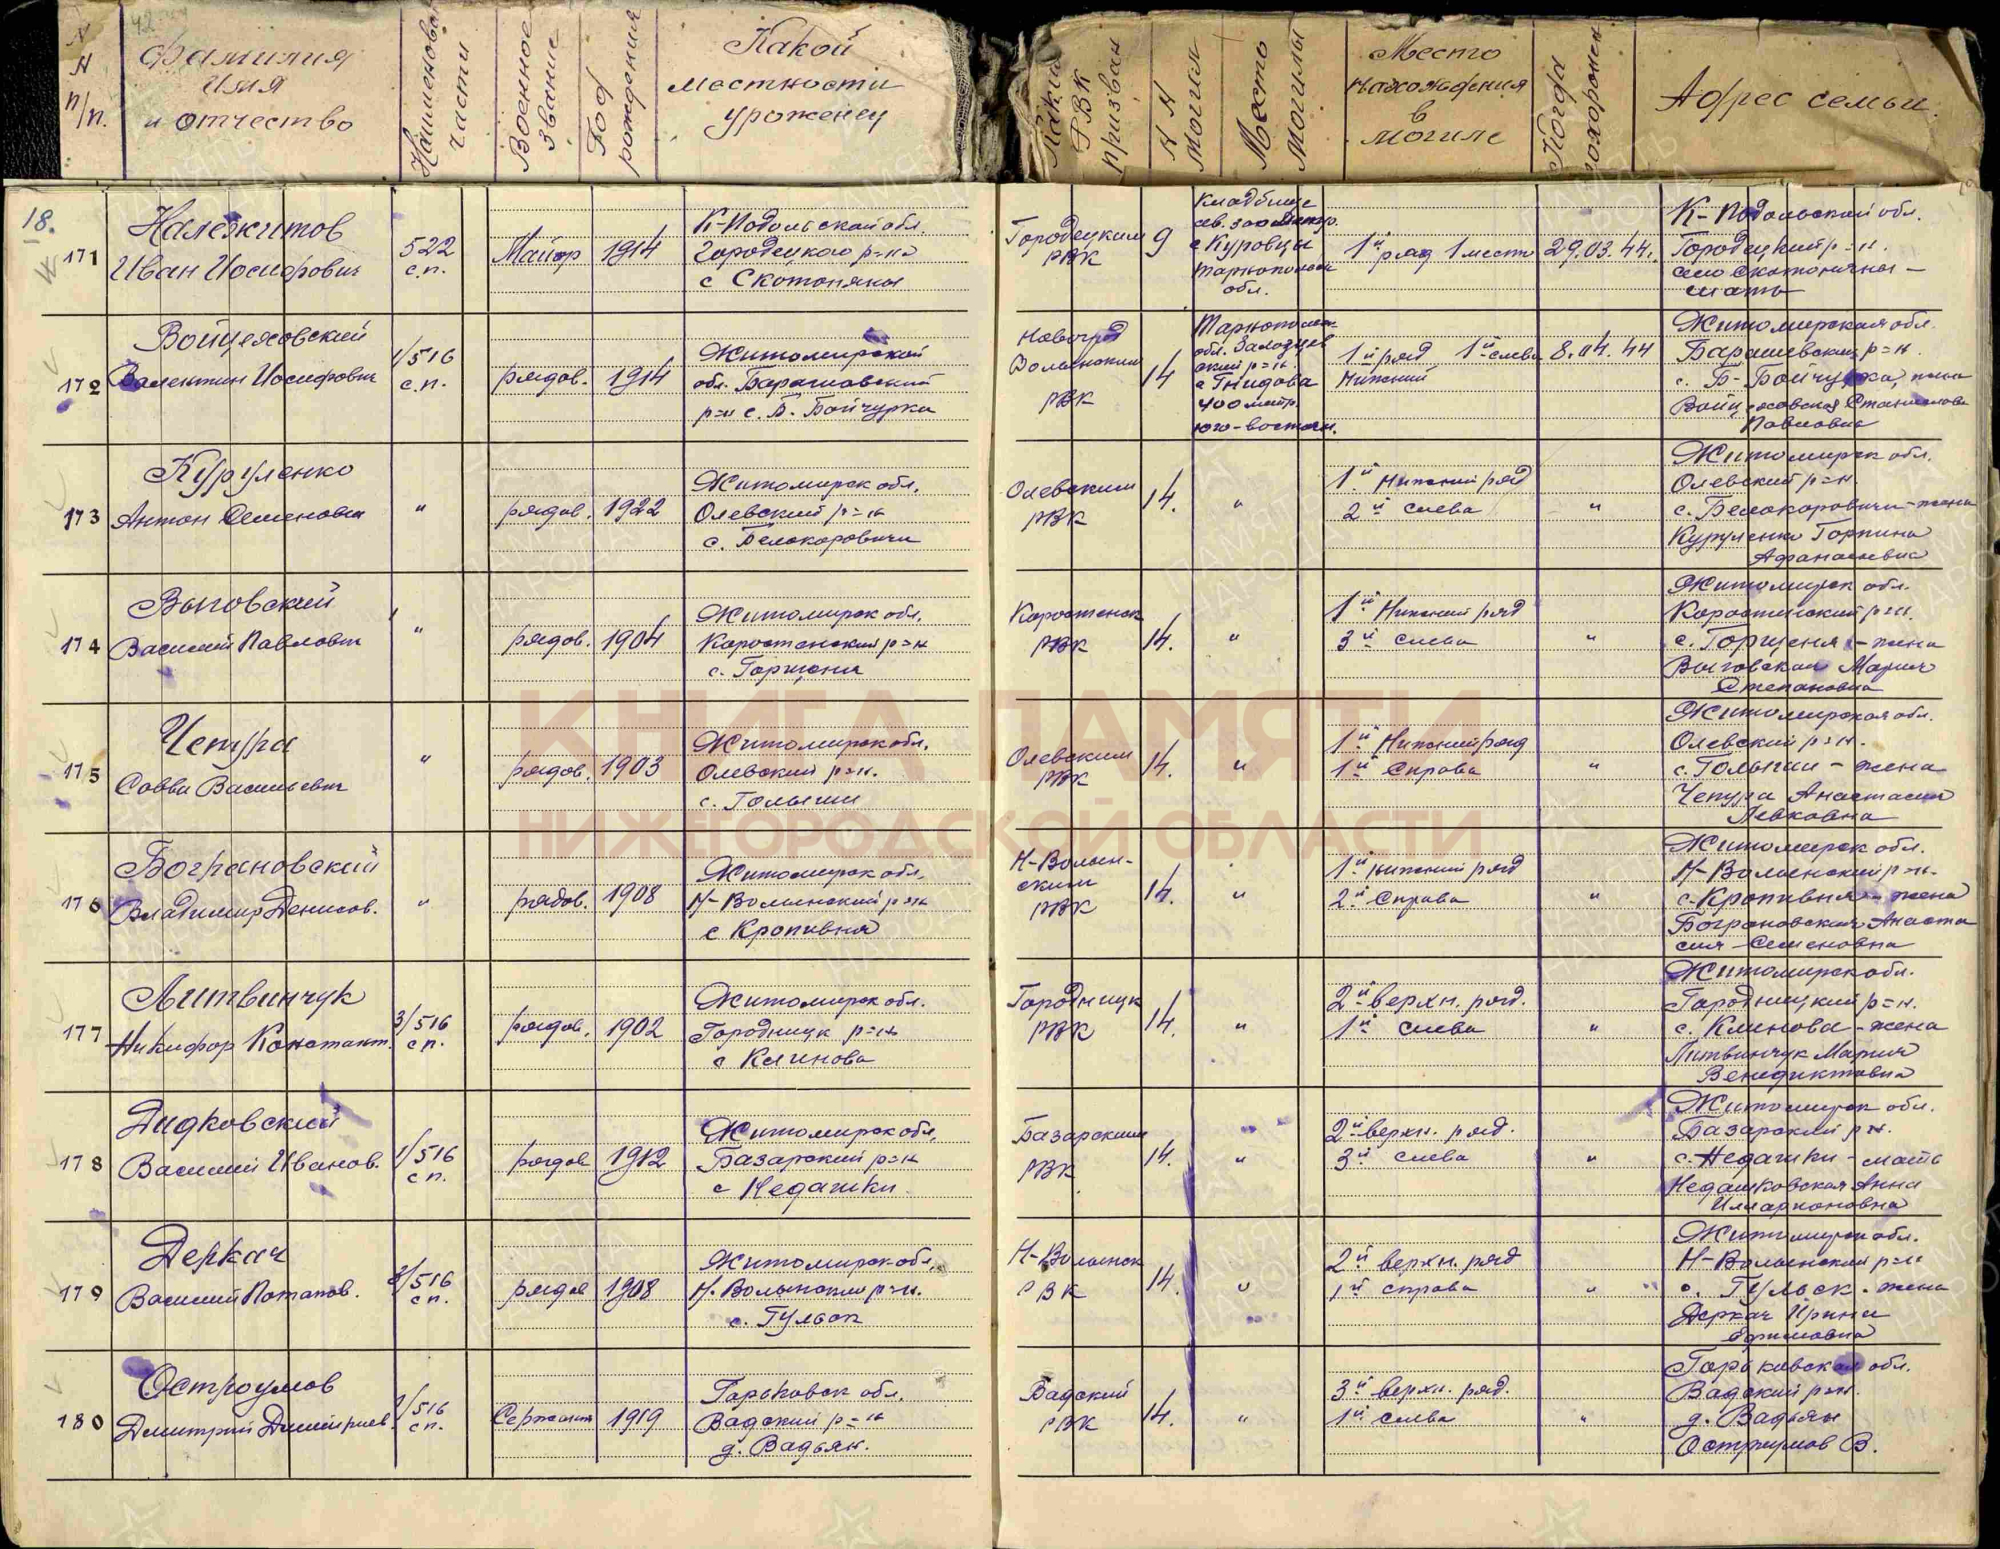 N N п/п.
Фамилия
имя
и отчество
Наименован. части
Военное звание
Год рождения
Какой
местности
уроженец
Каким РВК призван
N N могил
Место могилы
Место
нахождения
в
могиле
Когда похоронен
Адрес семьи
18.
171
Належитов
Иван Иосифович
522
с.п.
Майор
1914
К-Подольской обл
Городецкого р-на
с Скотоняны
Городецким
РВК
9
Кладбище
сев. 300 метр.
с Куровцы
Тарнопольск
обл.
1й ряд 1 место
29.03.44г.
К-Подольской обл.
Городецкий р-н.
село
мать
172
Войцеховский
Валентин Иосифович
1/516
с.п.
рядов.
1914
Житомирской
обл. Барашовский
р-н с. Б. Бойчурки
Новоград
Волынским
РВК
14
Тарнопольск.
обл. Залозцев
ский р-н.
с Гнидова
400 метр.
юго-восточн.
1й ряд 1й слева
Нижний
8.04.44
Житомирская обл.
Барашевский р-н
с. Б-Бойчурка, жена
Войцеховская
Павловна
173
Куруленко
Антон Семенович
"
рядов.
1922
Житомирск обл.
Олевский р-н
с. Белокоровичи
Олевским
РВК
14.
"
1й Нижний ряд
2й слева
"
Житомирск обл.
Олевский р-н.
с. Белокоровичи-жена
Куруленко Горпина
Афанасьевна
174
Выговский
Василий Павлович
"
рядов.
1904
Житомирск обл.
Коростенский р-н
с. Горщени
Коростенск
РВК
14.
"
1й Нижний ряд
3й слева
"
Житомирск обл.
Коростенский р-н.
с. Горщеня - жена
Выговская Мария
Степановна
175
Чепура
Савва Васильевич
"
рядов.
1903
Житомирск обл.
Олевский р-н.
с. Голыши
Олевским
РВК
14.
"
1й Нижний ряд
1й Справа
"
Житомирская обл.
Олевский р-н.
с. Голыши - жена
Чепура Анастасия
Левковна
176
Бограновский
Владимир Денисов.
"
рядов.
1908
Житомирск обл.
Н-Волынский р-н
с Кропивня
Н-Волын-
ским
РВК
14.
"
1й нижний ряд
2й Справа
"
Житомирск обл.
Н-Волынский р-н.
с. Кропивня - жена
Бограновская Анаста
сия - Семеновна
177
Литвинчук
Никифор Констант.
3/516
с п.
рядов.
1902
Житомирск обл.
Городницк р-н
с Клинова
Городницк
РВК
14.
"
2й верхн. ряд.
1й слева
"
Житомирск обл.
Городницкий р-н.
с. Клинова - жена
Литвинчук Мария
Венедиктовна
178
Дидковский
Василий Иванов.
1/516
с п.
рядов
1912
Житомирск обл.
Базарский р-н
с Недашки
Базарским
РВК
14.
"
2й верхн. ряд.
3й слева
"
Житомирск обл.
Базарский р-н.
с. Недашки - мать
Недашковская Анна
Илларионовна
179
Деркач
Василий Потапов.
3/516
с п.
рядов
1908
Житомирск обл.
Н. Волынский р-н.
с. Гульск
Н-Волынск
РВК
14.
"
2й верхн. ряд
1й справа
"
Житомирск обл.
Н-Волынский р-н
с. Гульск - жена
Деркач Ирина
Ефимовна
180
Остроумов
Дмитрий Дмитриев.
с.п.
Сержант
1919
Горьковск обл.
Вадский р-н
д. Вадьян.
Вадский
РВК
14.
"
3й верхн. ряд.
1й слева
"
Горьковская обл.
Вадский р-н.
д. Вадьян
Остроумов В.
КНИГА ПАМЯТИ
НИЖЕГОРОДСКОЙ ОБЛАСТИ